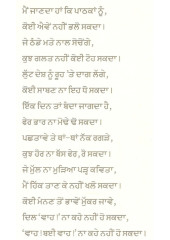 ਮੈਂ ਜਾਣਦਾ ਹਾਂ ਕਿ ਪਾਠਕਾਂ ਨੂੰ,
ਕੋਈ ਐਵੇਂ ਨਹੀਂ ਭਲੋ ਸਕਦਾ।
ਜੇ ਠੰਡੇ ਮਤੇ ਨਾਲ ਸੋਚੋਂਗੇ,
ਕੁਝ ਗਲਤ ਨਹੀਂ ਕੋਈ ਟੋਹ ਸਕਦਾ।
ਲੁੱਟ ਦੇਸ਼ ਨੂੰ ਰੂਹ 'ਤੇ ਦਾਗ ਲੱਗੇ,
ਕੋਈ ਸਾਬਣ ਨਾ ਇਹ ਧੋ ਸਕਦਾ।
ਇੱਕ ਦਿਨ ਤਾਂ ਬੰਦਾ ਜਾਗਦਾ ਹੈ,
ਫੇਰ ਭਾਰ ਨਾ ਮੋਢੇ ਢੋ ਸਕਦਾ।
ਪਛਤਾਵੇ ਤੇ ਥਾਂ-ਥਾਂ ਨੱਕ ਰਗੜੇ,
ਕੁਝ ਹੋਰ ਨਾ ਬੱਸ ਫੇਰ, ਰੋ ਸਕਦਾ।
ਜੇ ਮੁੱਲ ਨਾ ਮੁੜਿਆ ਪੜ੍ਹ ਕਵਿਤਾ,
ਮੈਂ ਹਿੱਕ ਤਾਣ ਕੇ ਨਹੀਂ ਖਲੋ ਸਕਦਾ।
ਕੋਈ ਮੰਨਣ ਤੋਂ ਭਾਵੇਂ ਮੁੱਕਰ ਜਾਵੇ,
ਦਿਲ 'ਵਾਹ !' ਨਾ ਕਹੇ ਨਹੀਂ ਹੋ ਸਕਦਾ,
'ਵਾਹ ! ਬਈ ਵਾਹ !' ਨਾ ਕਹੇ ਨਹੀਂ ਹੋ ਸਕਦਾ।